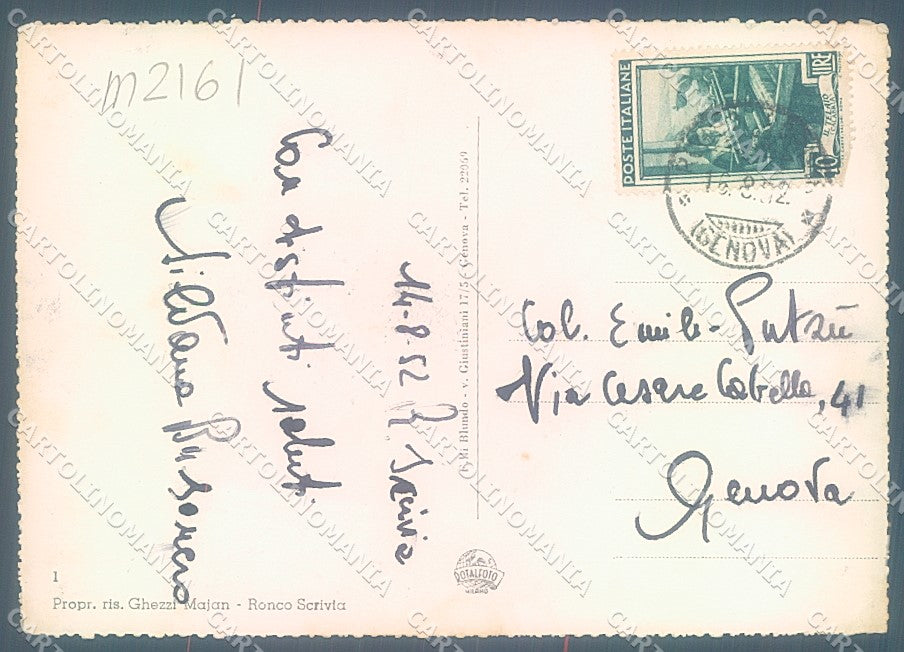 m2161
14-8-52 R. Scrivia
Con distinti saluti
Silvana
POSTE ITALIANE
LIRE
10
8.52
(GENOVA)
Col. Emilio Putzu
Via Cesare Cabella, 41
Genova
Ediz. Blundo - v. Giustiniani 17/5 - Genova - Tel. 22069
ROTALFOTO
MILANO
1
Propr. ris. Ghezzi Majan - Ronco Scrivia
CARTOLINOMANIA